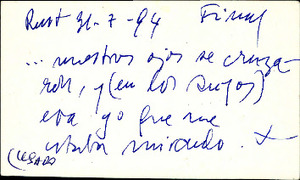 Rust 31-7-94 Final
... nuestros ojos se cruza-
ron, y (en los suyos)
era yo que me
estaba mirando.